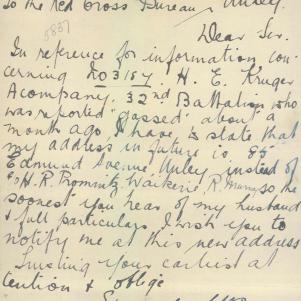 To the Red Cross Bureau, Unley.
5837
Dear Sir.
In reference for information con-
cerning No 3184 H. E. Kruger
A company 32nd Battalion who
was reported gassed about a
month ago, I have to state that
my address in future is 85
Edmund Avenue, Unley instead of
c/o H. R. Waikerie R. Murray so he
soonest you hear of my husband
& full particulars I wish you to
notify me at this new address
Trusting your earliest at
tention & oblige